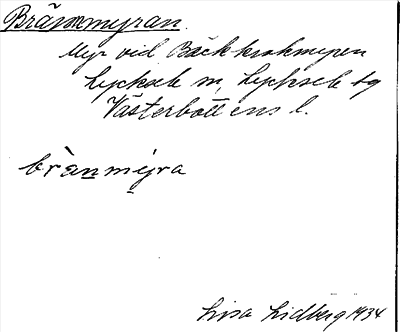 Brännmyran.
Myr vid Bäckkrokmyren
Lycksele sn, Lycksele tg
Västerbottens l.
brànmýra
Lisa Lidberg 1934